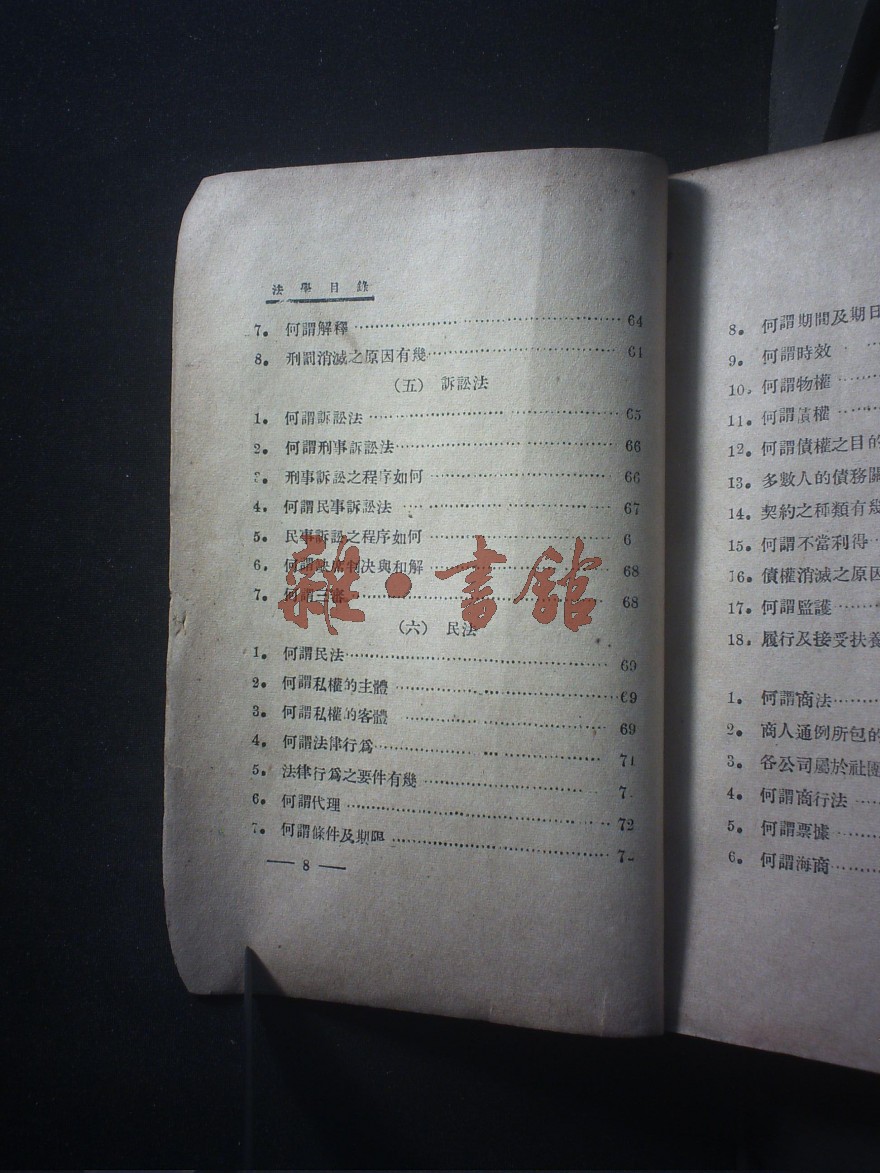 法學目錄
7. 何謂解釋 64
8. 刑罰消滅之原因有幾 61
（五） 訴訟法
1. 何謂訴訟法 65
2. 何謂刑事訴訟法 66
3. 刑事訴訟之程序如何 66
4. 何謂民事訴訟法 67
5. 民事訴訟之程序如何 6
6. 何謂缺席判決與和解 68
7. 何謂三審 68
雜·書館
（六） 民法
1. 何謂民法 69
2. 何謂私權的主體 69
3. 何謂私權的客體 69
4. 何謂法律行爲 71
5. 法律行爲之要件有幾 7
6. 何謂代理 72
7. 何謂條件及期限 7
— 8 —
8. 何謂期間及期日
9. 何謂時效
10. 何謂物權
11. 何謂債權
12. 何謂債權之目的
13. 多數人的債務關
14. 契約之種類有幾
15. 何謂不當利得
16. 債權消滅之原因
17. 何謂監護
18. 履行及接受扶養
1. 何謂商法
2. 商人通例所包的
3. 各公司屬於社團
4. 何謂商行法
5. 何謂票據
6. 何謂海商